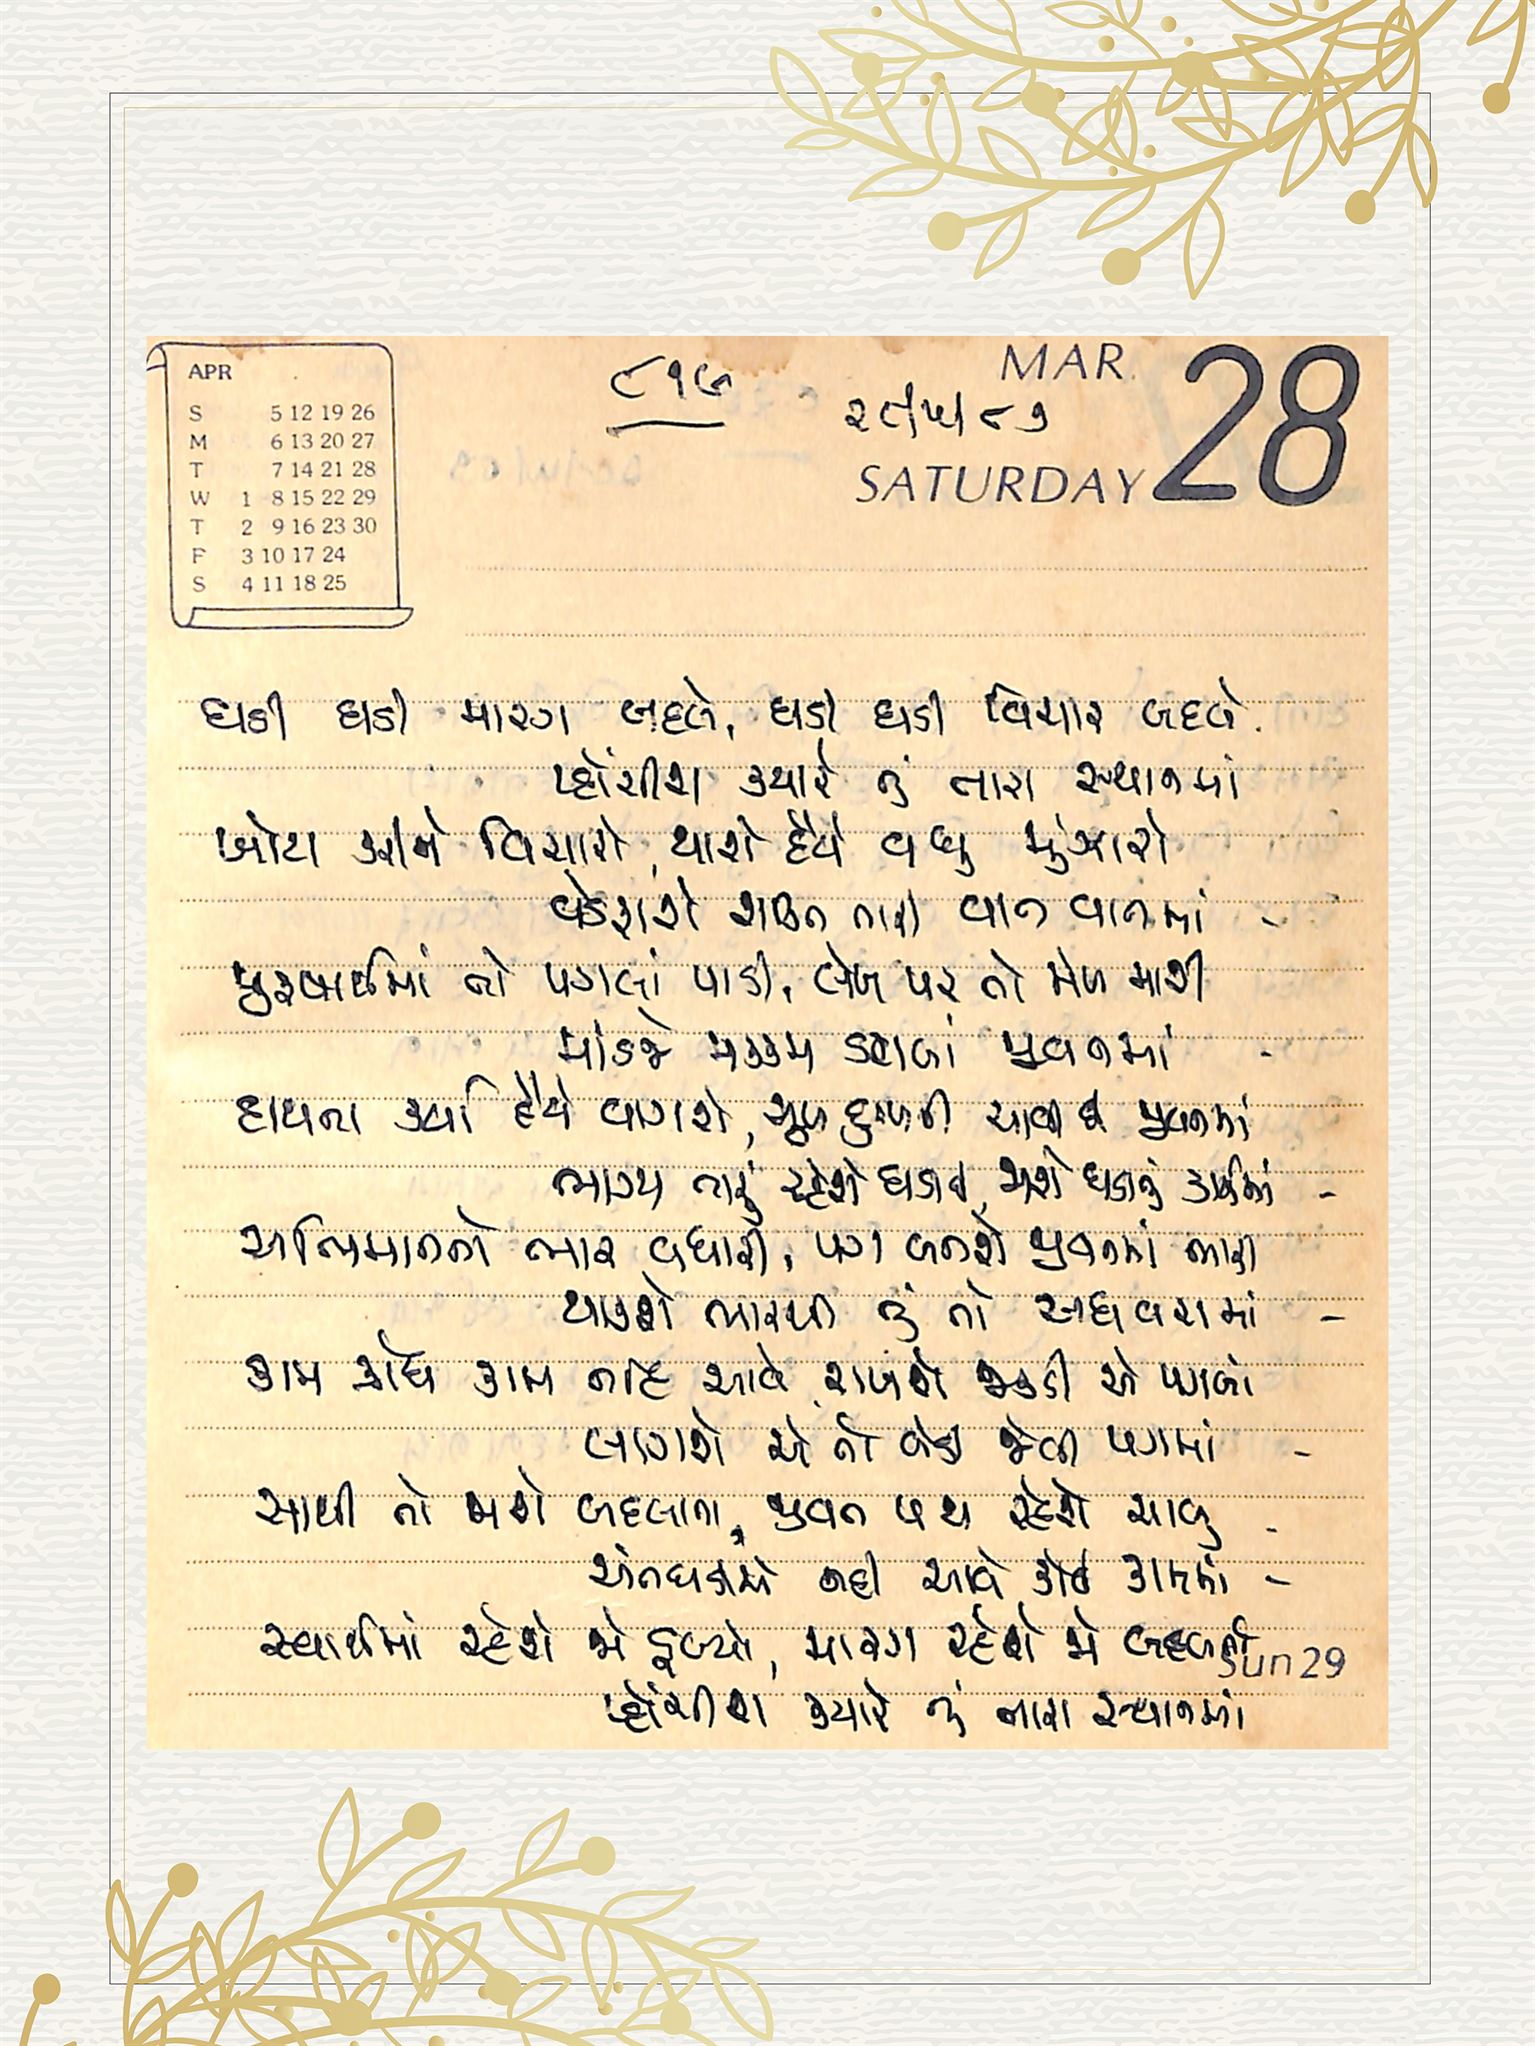 APR
S 5 12 19 26
M 6 13 20 27
T 7 14 21 28
W 1 8 15 22 29
T 2 9 16 23 30
F 3 10 17 24
S 4 11 18 25
૮૧૭
MAR 28
૨૮/૫/૮૭
SATURDAY
ઘડી ઘડી મારગ બદલે, ઘડી ઘડી વિચાર બદલે
પ્હોંચીશ ક્યારે તું તારા સ્થાનમાં
ખોટા કરીને વિચારો, થાશે હૈયે વધુ મુંઝારો
વેડફાશે શક્તિ તારી વાત વાતમાં -
પુરુષાર્થમાં તો પગલાં પાડી, લેખ પર તો મેખ મારી
માંડજે મક્કમ ડગલાં જીવનમાં -
હાથના કર્યા હૈયે વાગશે, સુખ દુઃખની ચાવી છે જીવનમાં
ભાગ્ય તારું રહેશે ઘડાઈ, જાશે ઘડાતું કર્મમાં -
અભિમાનનો ભાર વધારી, પગ બનશે જીવનમાં ભારી
થાકશે ભારથી તું તો અધવચમાં -
કામ ક્રોધ કામ નહિ આવે, રાખશે જકડી એ પગલાં
લાગશે એ તો બેડી જેવી પગમાં -
સાથી તો જાશે બદલાતા, જીવન પથ રહેશે ચાલુ -
અંતઘડીએ નહીં આવે કોઈ કામમાં -
સ્વાર્થમાં રહેશે જો ડૂબ્યો, મારગ રહેશે જો બદલતો
Sun 29
પ્હોંચીશ ક્યારે તું તારા સ્થાનમાં